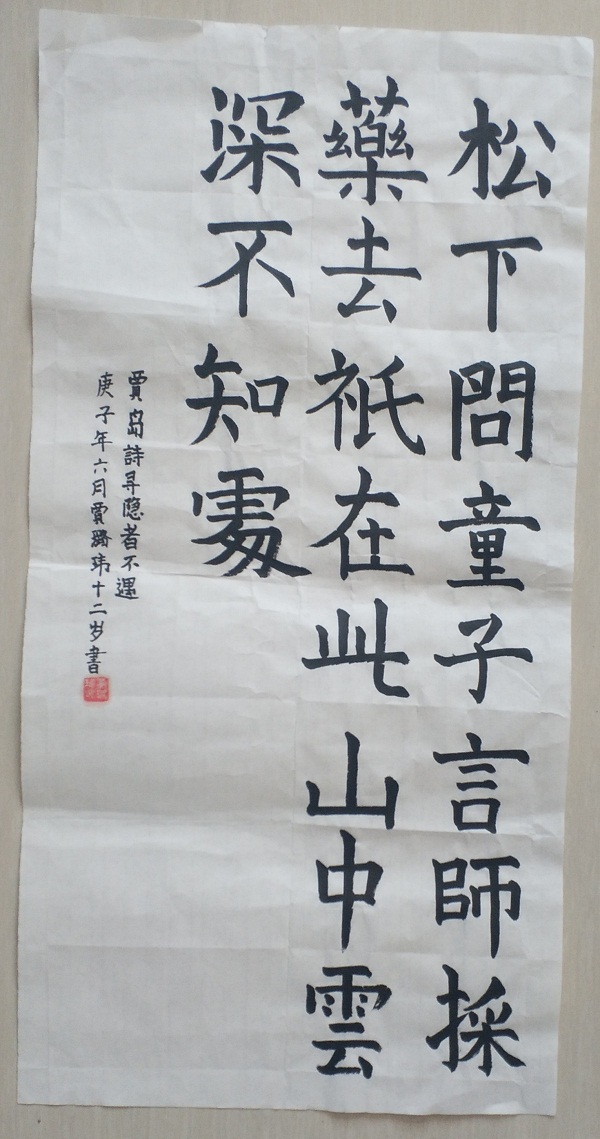 松下問童子言師採
藥去祇在此山中雲
深不知處
賈岛詩寻隐者不遇
庚子年六月賈璐玮十二岁書